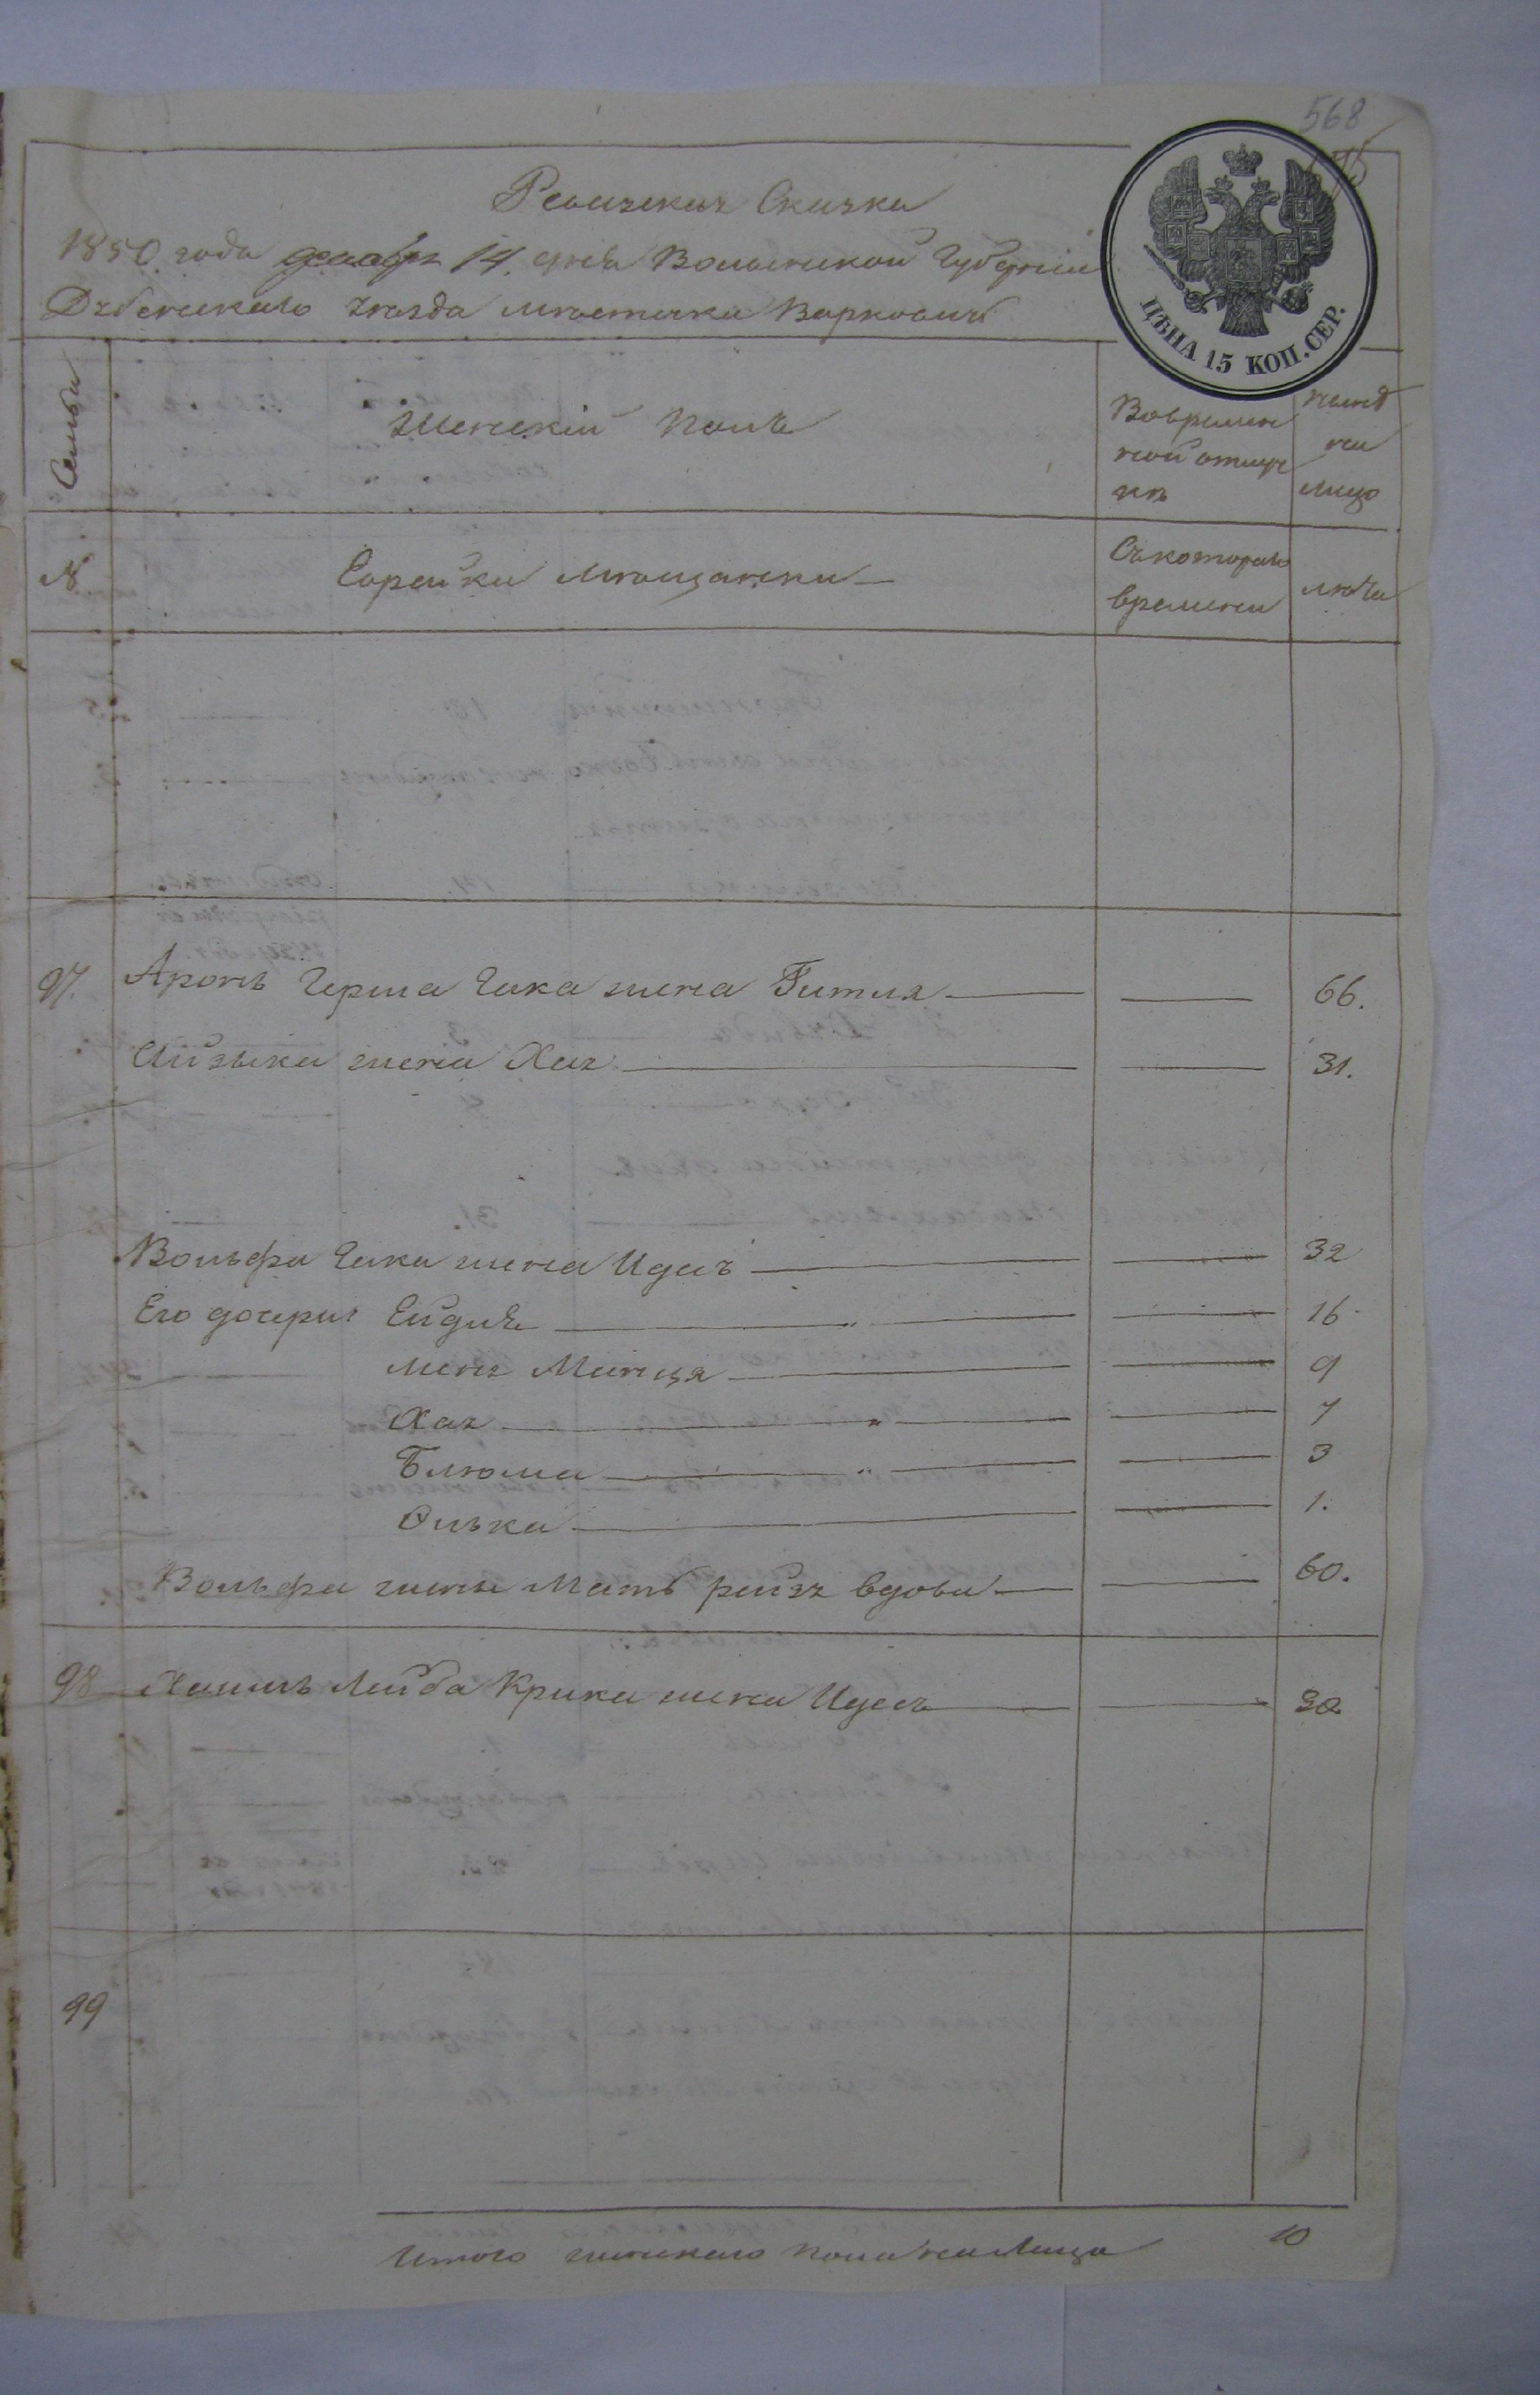 568
Ревизская Сказка
1850 года декабря 14 дня Волынской Губернии
Дубенскаго уѣзда мѣстечка Варковичъ
ЦѢНА 15 КОП. СЕР.
Семьи
Женскій полъ
Вовремен
ной отлуч
кѣ
нынѣ
на
лицо
№
Еврейки мѣщанки
Съкотораго
времени
лѣта
97. Аронъ Герша Гика жена Гитля 66.
Айзыка жена Хая 31.
Вольфа Гика жена Идесъ 32
Его дочери Ейдля 16
Миндя 9
Хая 7
Блюма 3
Элька 1.
Вольфа жены Мать рейзя вдова 60.
98 Хаимъ Лейба Крика жена Идесъ 30
99
Итого женскаго пола на Лицо 10